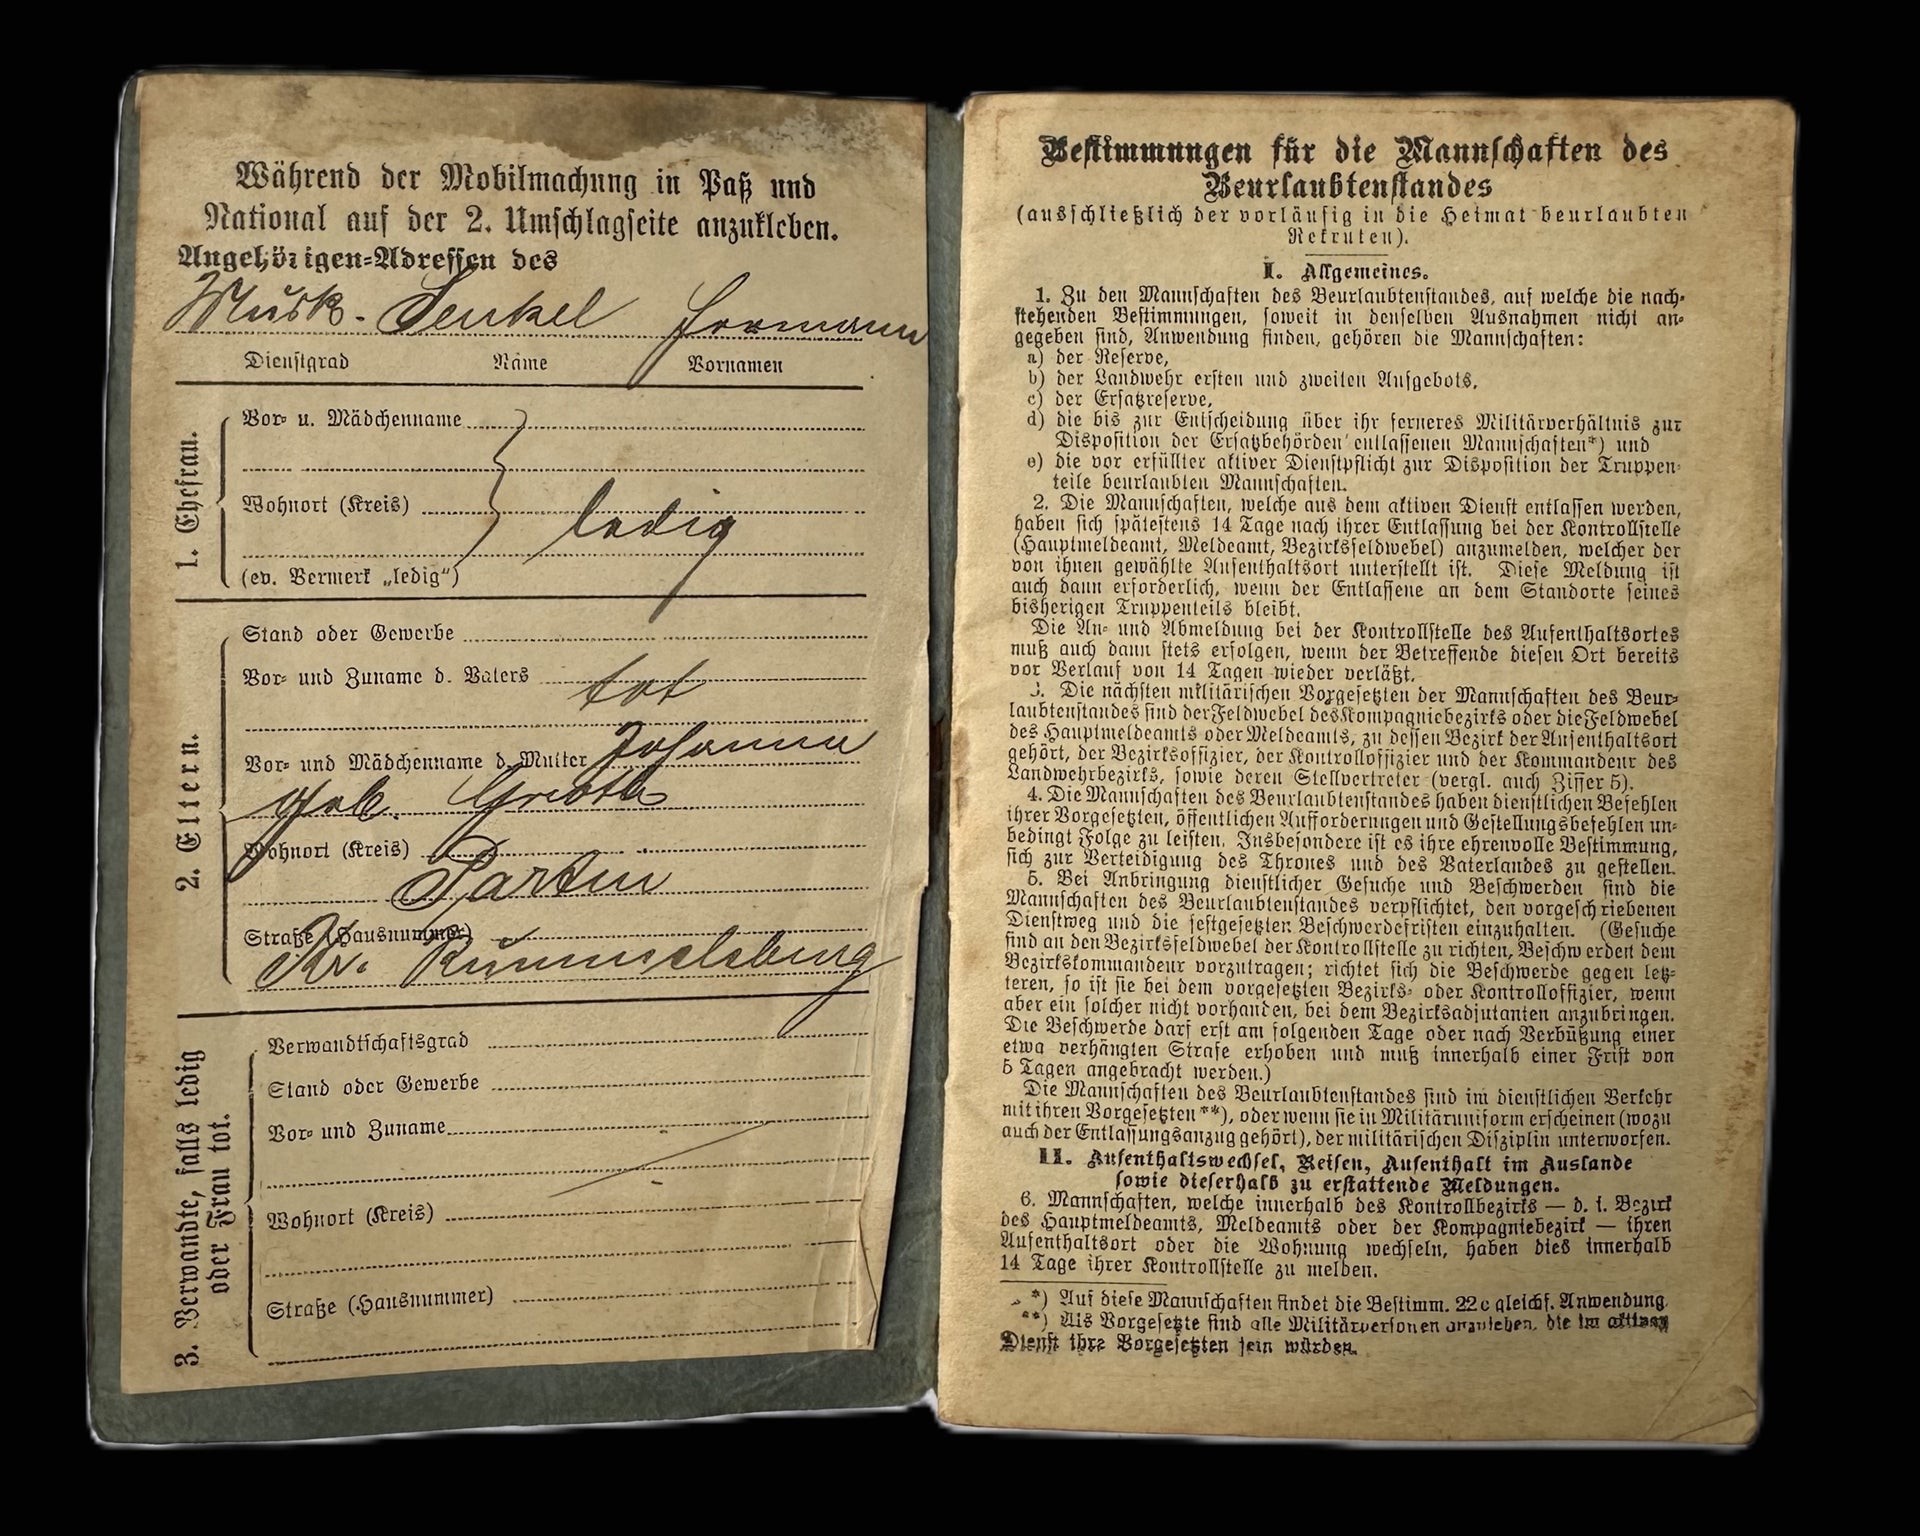 Während der Mobilmachung in Paß und
National auf der 2. Umschlagseite anzukleben.
Angehörigen-Adressen des
Musk. Henkel Hermann
Dienstgrad Name Vornamen
1. Ehefrau.
Vor- u. Mädchenname
Wohnort (Kreis)
ledig
(ev. Vermerk „ledig“)
2. Eltern.
Stand oder Gewerbe
Vor- und Zuname d. Vaters tot
Vor- und Mädchenname d. Mutter Johanna
geb.
Wohnort (Kreis)
Straße (Hausnummer)
Kr. Rummelsburg
3. Verwandte, falls ledig
oder Frau tot.
Verwandtschaftsgrad
Stand oder Gewerbe
Vor- und Zuname
Wohnort (Kreis)
Straße (Hausnummer)
Bestimmungen für die Mannschaften des
Beurlaubtenstandes
(ausschließlich der vorläufig in die Heimat beurlaubten
Rekruten).
I. Allgemeines.
1. Zu den Mannschaften des Beurlaubtenstandes, auf welche die nach-
stehenden Bestimmungen, soweit in denselben Ausnahmen nicht an-
gegeben sind, Anwendung finden, gehören die Mannschaften:
a) der Reserve,
b) der Landwehr ersten und zweiten Aufgebots,
c) der Ersatzreserve,
d) die bis zur Entscheidung über ihr ferneres Militärverhältnis zur
Disposition der Ersatzbehörden entlassenen Mannschaften*) und
e) die vor erfüllter aktiver Dienstpflicht zur Disposition der Truppen-
teile beurlaubten Mannschaften.
2. Die Mannschaften, welche aus dem aktiven Dienst entlassen werden,
haben sich spätestens 14 Tage nach ihrer Entlassung bei der Kontrollstelle
(Hauptmeldeamt, Meldeamt, Bezirksfeldwebel) anzumelden, welcher der
von ihnen gewählte Aufenthaltsort unterstellt ist. Diese Meldung ist
auch dann erforderlich, wenn der Entlassene an dem Standorte seines
bisherigen Truppenteils bleibt.
Die An- und Abmeldung bei der Kontrollstelle des Aufenthaltsortes
muß auch dann stets erfolgen, wenn der Betreffende diesen Ort bereits
vor Verlauf von 14 Tagen wieder verläßt.
3. Die nächsten militärischen Vorgesetzten der Mannschaften des Beur-
laubtenstandes sind der Feldwebel des Kompagniebezirks oder die Feldwebel
des Hauptmeldeamts oder Meldeamts, zu dessen Bezirk der Aufenthaltsort
gehört, der Bezirksoffizier, der Kontrolloffizier und der Kommandeur des
Landwehrbezirks, sowie deren Stellvertreter (vergl. auch Ziffer 5).
4. Die Mannschaften des Beurlaubtenstandes haben dienstlichen Befehlen
ihrer Vorgesetzten, öffentlichen Aufforderungen und Gestellungsbefehlen un-
bedingt Folge zu leisten. Insbesondere ist es ihre ehrenvolle Bestimmung,
sich zur Verteidigung des Thrones und des Vaterlandes zu gestellen.
5. Bei Anbringung dienstlicher Gesuche und Beschwerden sind die
Mannschaften des Beurlaubtenstandes verpflichtet, den vorgeschriebenen
Dienstweg und die festgesetzten Beschwerdefristen einzuhalten. (Gesuche
sind an den Bezirksfeldwebel der Kontrollstelle zu richten, Beschwerden dem
Bezirkskommandeur vorzutragen; richtet sich die Beschwerde gegen letz-
teren, so ist sie bei dem vorgesetzten Bezirks- oder Kontrolloffizier, wenn
aber ein solcher nicht vorhanden, bei dem Bezirksadjutanten anzubringen.
Die Beschwerde darf erst am folgenden Tage oder nach Verbüßung einer
etwa verhängten Strafe erhoben und muß innerhalb einer Frist von
5 Tagen angebracht werden.)
Die Mannschaften des Beurlaubtenstandes sind im dienstlichen Verkehr
mit ihren Vorgesetzten**), oder wenn sie in Militäruniform erscheinen (wozu
auch der Entlassungsanzug gehört), der militärischen Disziplin unterworfen.
II. Aufenthaltswechsel, Reisen, Aufenthalt im Auslande
sowie dieserhalb zu erstattende Meldungen.
6. Mannschaften, welche innerhalb des Kontrollbezirks — d. i. Bezirk
des Hauptmeldeamts, Meldeamts oder der Kompagniebezirk — ihren
Aufenthaltsort oder die Wohnung wechseln, haben dies innerhalb
14 Tage ihrer Kontrollstelle zu melden.
*) Auf diese Mannschaften findet die Bestimm. 22c gleichf. Anwendung.
**) Als Vorgesetzte sind alle Militärpersonen anzusehen, die im aktiven
Dienst ihre Vorgesetzten sein würden.